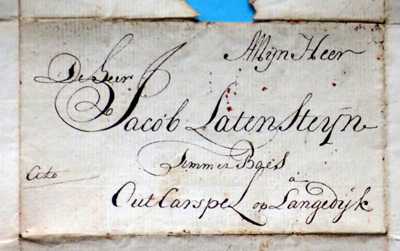 Mÿn Heer
De Heer
Jacob Laten Steÿn
Timmer Baes
Cito à
Out Carspel op Langedÿk